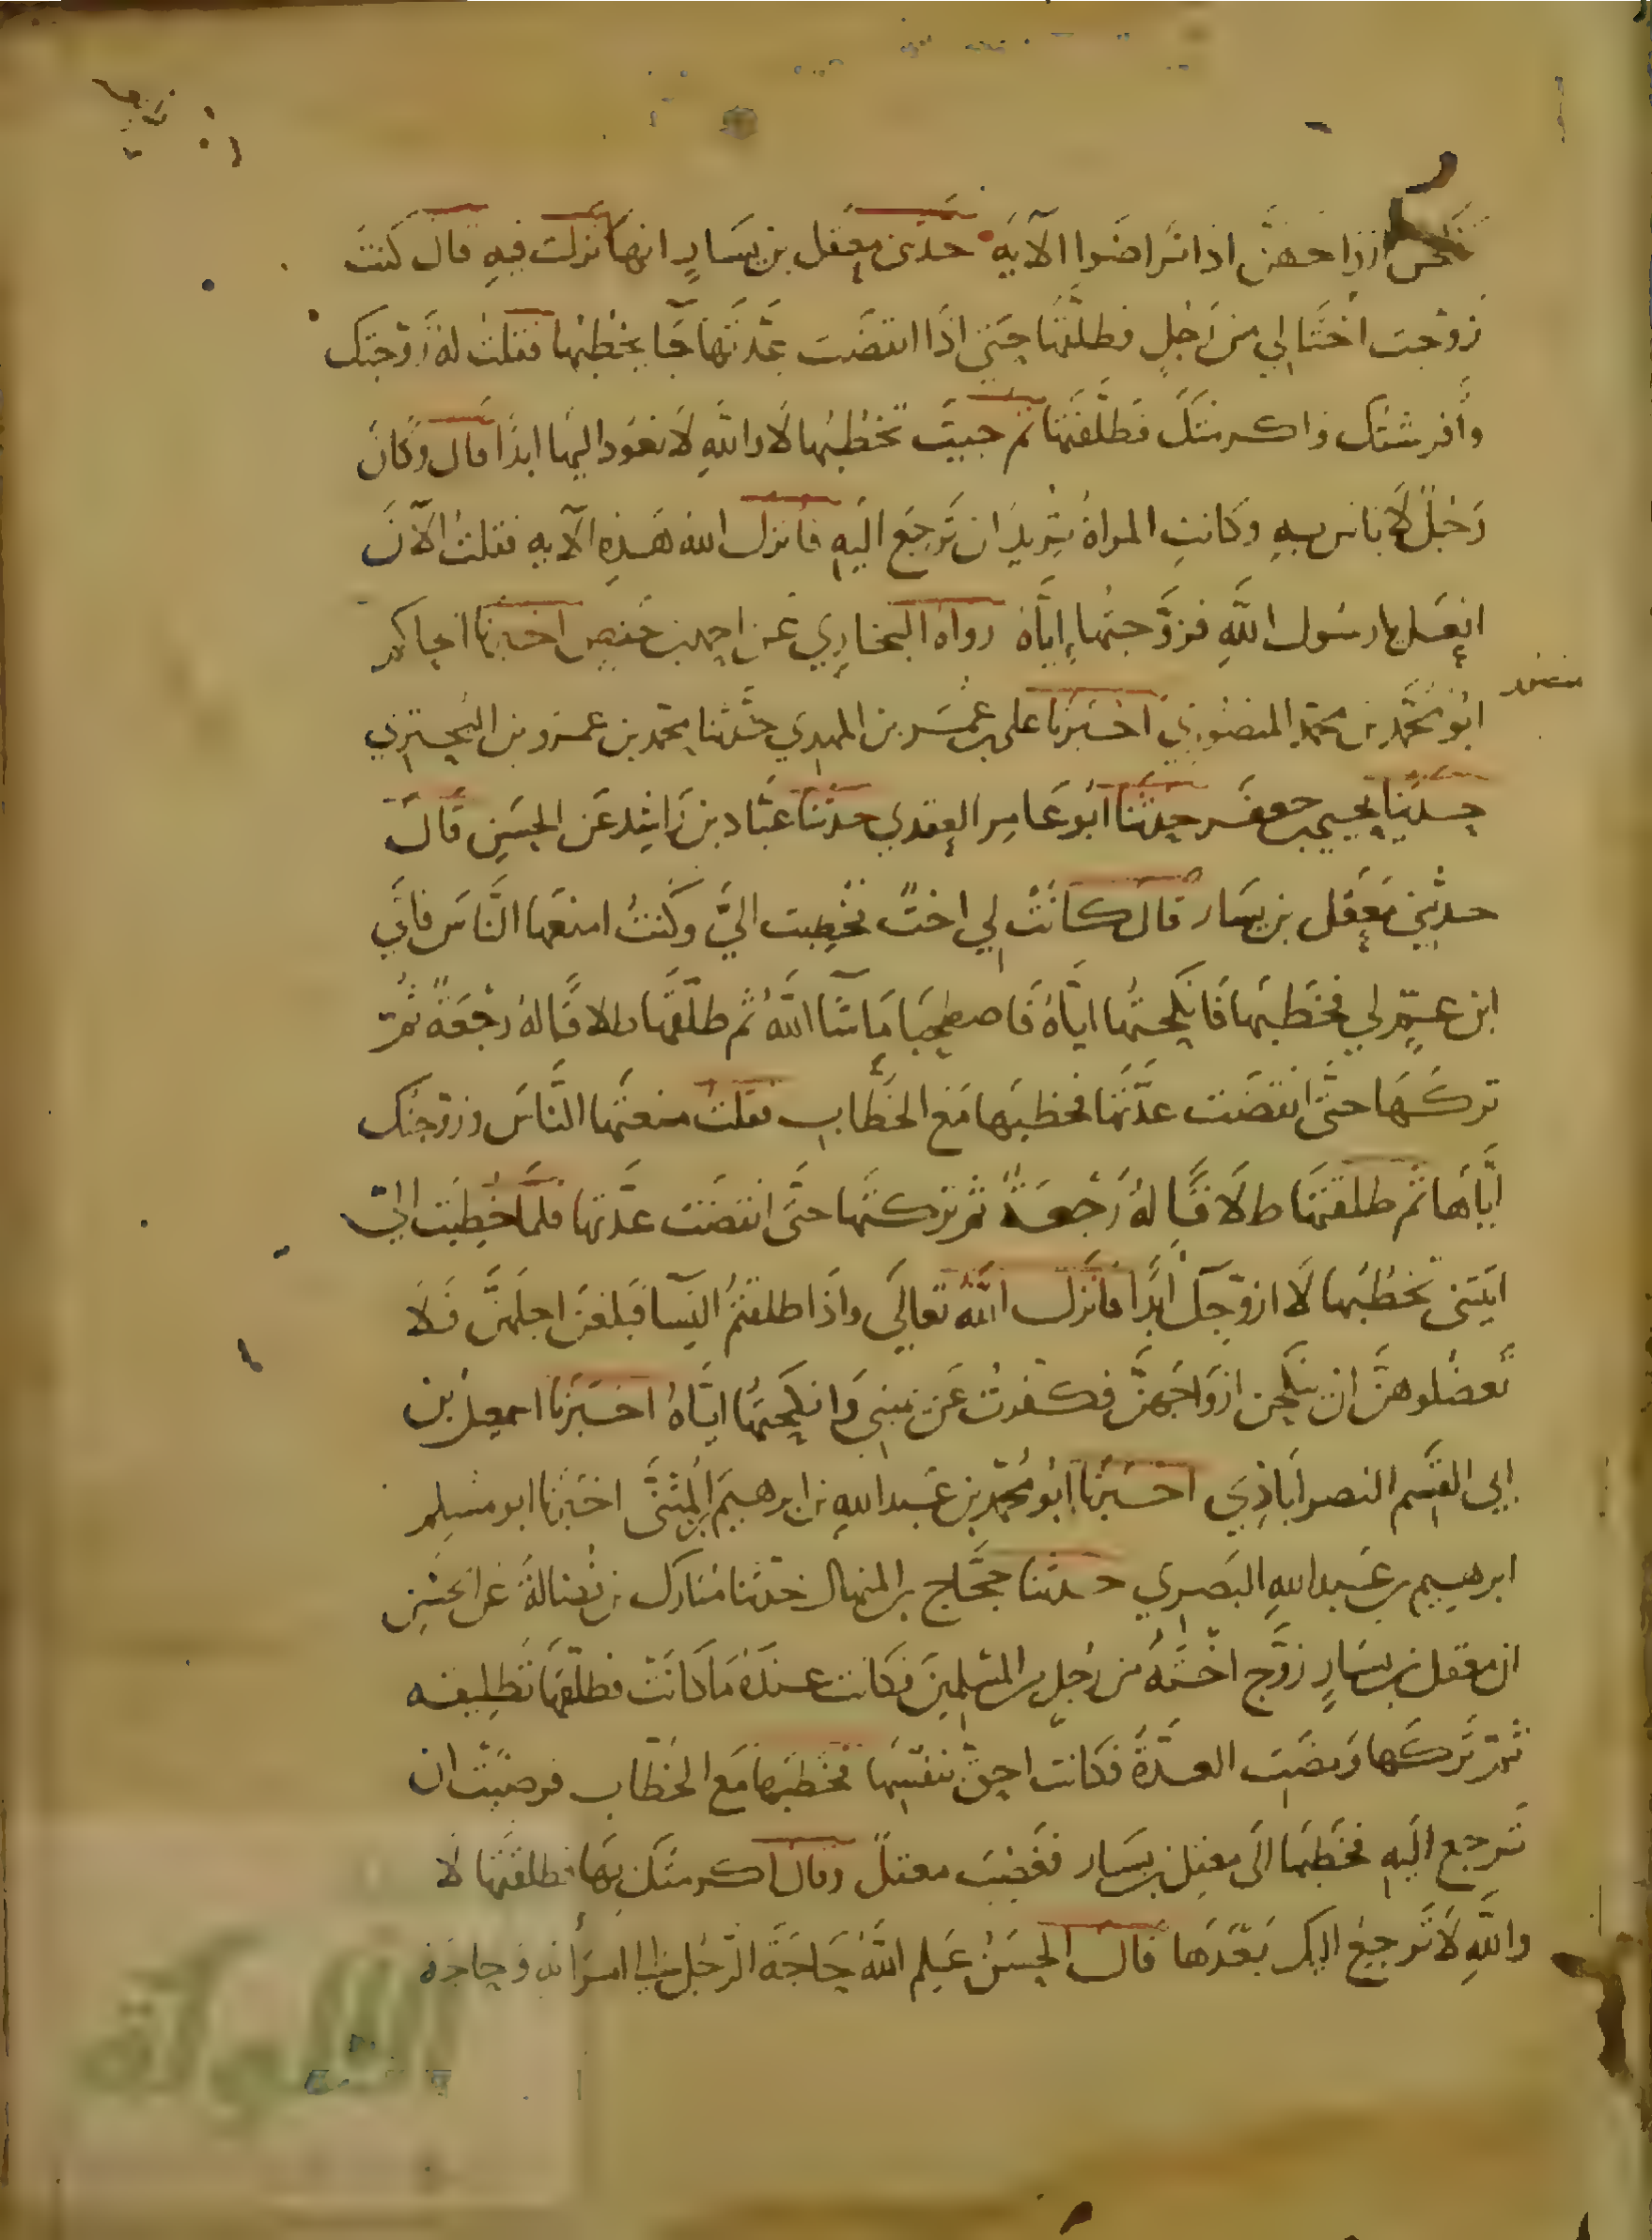 ينكحن ازواجهن اذا تراضوا الآية حدثني معقل بن يسار انها نزلت فيه قال كنت
زوجت اختا لي من رجل فطلقها حتى اذا انقضت عدتها جآ يخطبها فقلت له زوجتك
وأفرشتك واكرمتك فطلقتها ثم جيت تخطبها لا والله لا تعود اليها ابدا قال وكان
رجلا لا باس به وكانت المراة تريد ان ترجع اليه فانزل الله هذه الآية فقلت الآن
افعل يا رسول الله فزوجتها إياه رواه البخاري عن احمد بن حفص اخبرنا الحاكم
ابو محمد بن محمد المنصوري اخبرنا علي بن عمر بن المهدي حدثنا محمد بن عمرو بن البختري
حدثنا يحيى بن جعفر حدثنا ابو عامر العقدي حدثنا عباد بن راشد عن الحسن قال
حدثني معقل بن يسار قال كانت لي اخت فخطبت الي وكنت امنعها الناس فاتى
ابن عم لي فخطبها فانكحتها اياه فاصطحبا ما شآ الله ثم طلقها طلاقا له رجعة ثم
تركها حتى انقضت عدتها فخطبها مع الخطاب فقلت منعتها الناس وزوجتك
اياها ثم طلقتها طلاقا له رجعة ثم تركتها حتى انقضت عدتها فلما خطبت الي
اتيتني تخطبها لا ازوجك ابدا فانزل الله تعالى واذا طلقتم النسآ فبلغن اجلهن فلا
تعضلوهن ان ينكحن ازواجهن فكفرت عن يميني وانكحتها اياه اخبرنا اسمعيل بن
ابي القسم النصراباذي اخبرنا ابو محمد بن عبد الله بن ابرهيم المثنى اخبرنا ابو مسلم
ابرهيم بن عبد الله البصري حدثنا حجاج بن المنهال حدثنا مبارك بن فضالة عن الحسن
ان معقل بن يسار زوج اخته من رجل من المسلمين فكانت عنده ما كانت فطلقها تطليقه
ثم تركها ومضت العدة فكانت احق بنفسها فخطبها مع الخطاب فرضيت ان
ترجع اليه فخطبها الى معقل بن يسار فغضب معقل وقال اكرمتك بها فطلقتها لا
والله لا ترجع اليك بعدها قال الحسن علم الله حاجة الرجل الى امرأته وحاجة